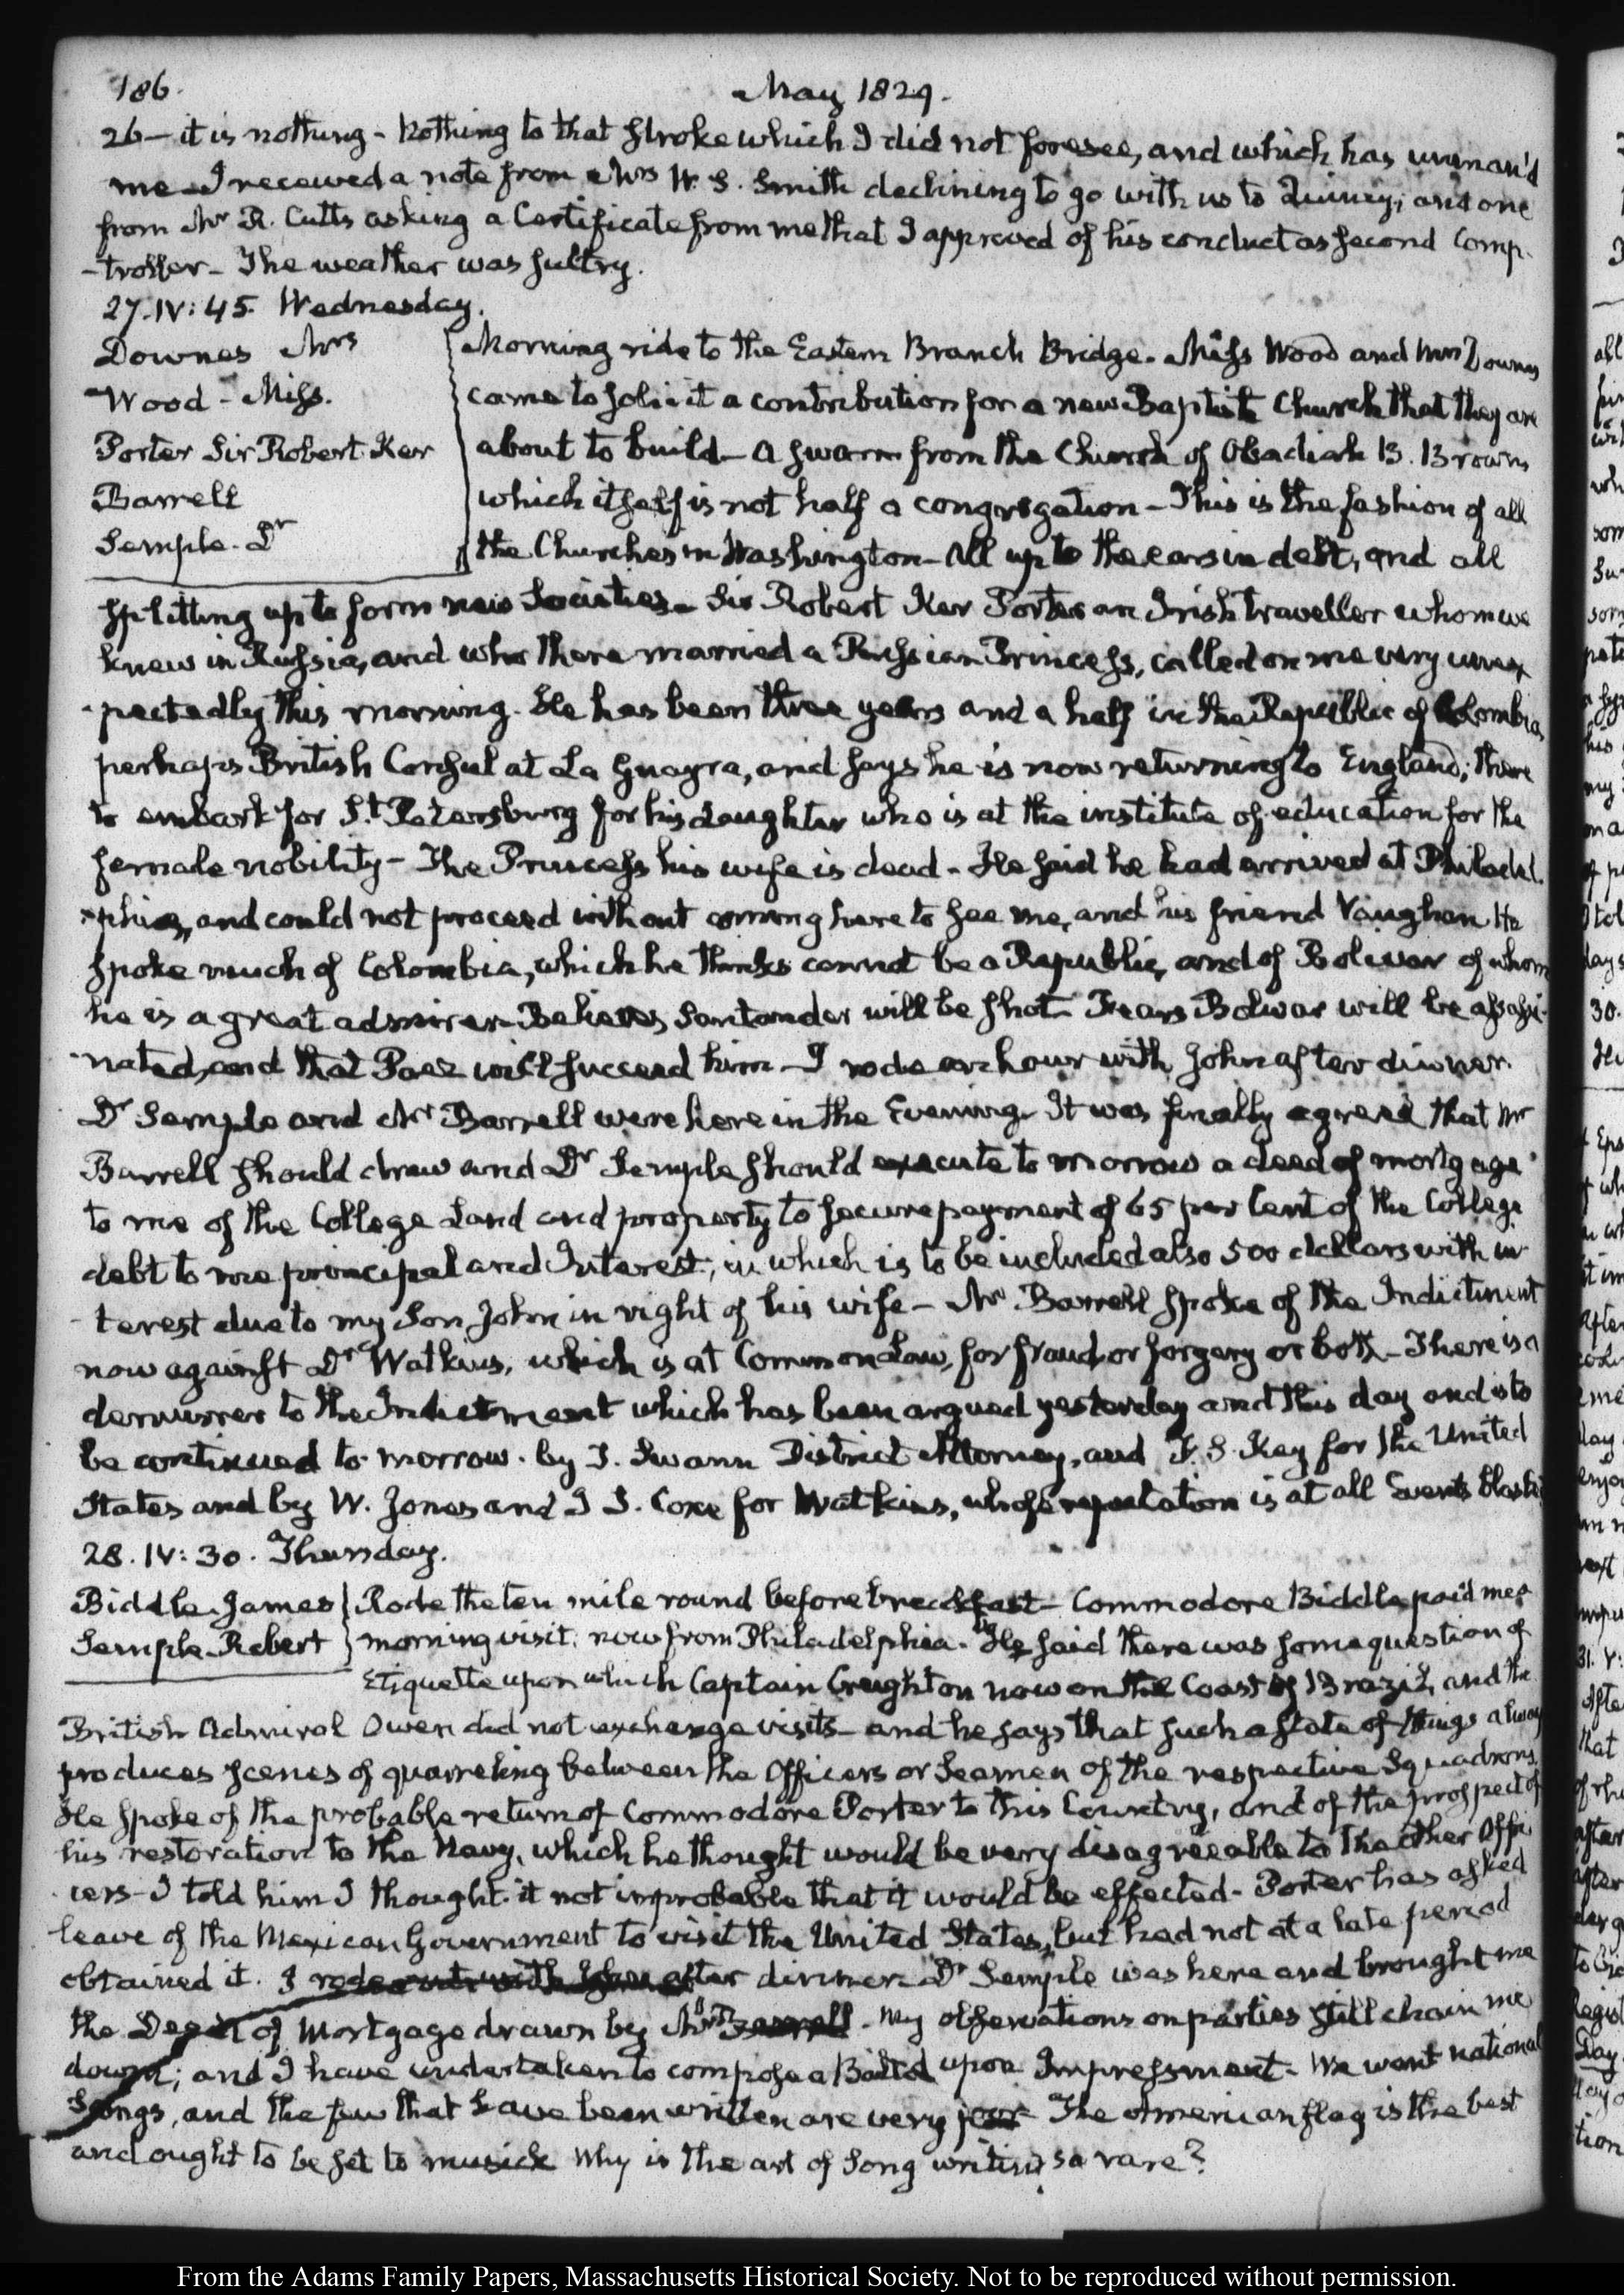 186.
May 1829.
26— it is nothing - Nothing to that stroke which I did not foresee, and which has unman'd
me - I received a note from Mrs W. S. Smith declining to go with us to Quincy; and one
from Mr R. Cutts asking a Certificate from me that I approved of his conduct as second Comp-
-troller - The weather was sultry.
27. IV: 45. Wednesday.
Downes Mrs
Wood - Miss.
Porter Sir Robert Ker
Barrell
Semple - Dr
Morning ride to the Eastern Branch Bridge - Miss Wood and Mrs Downes
came to solicit a contribution for a new Baptist Church that they are
about to build - a swarm from the Church of Obadiah B. Brown,
which itself is not half a congregation - This is the fashion of all
the Churches in Washington - All up to the ears in debt, and all
splitting up to form new Societies - Sir Robert Ker Porter an Irish traveller whom we
knew in Russia, and who there married a Russian Princess, called on me very unex
-pectedly this morning. He has been three years and a half in the Republic of Colombia,
perhaps British Consul at La Guayra, and says he is now returning to England; there
to embark for St. Petersburg for his daughter who is at the institute of education for the
female nobility - The Princess his wife is dead - He said he had arrived at Philadel-
-phia, and could not proceed without coming here to see me, and his friend Vaughan He
spoke much of Colombia, which he thinks cannot be a Republic, and of Bolivar of whom
he is a great admirer - Believes Santander will be shot - Fears Bolivar will be assassi-
-nated, and that Paez will succeed him - I rode an hour with John after dinner.
Dr Semple and Mr Barrell were here in the Evening - It was finally agreed that Mr
Barrell should draw and Dr Semple should execute to morrow a deed of mortgage
to me of the College Land and property to secure payment of 65 per Cent of the College
debt to me principal and Interest; in which is to be included also 500 dollars with in-
-terest due to my Son John in right of his wife - Mr Barrell spoke of the Indictment
now against Dr Watkins, which is at Common Law, for fraud or forgery or both - There is a
demurrer to the Indictment which has been argued yesterday and this day and is to
be continued to morrow. by T. Swann District Attorney, and F. S. Key for the United
States and by W. Jones and R. S. Coxe for Watkins, whose reputation is at all Events blasted
28. IV: 30. Thursday.
Biddle - James
Semple - Robert
Rode the ten mile round before breakfast - Commodore Biddle paid me a
morning visit: now from Philadelphia. He said there was some question of
Etiquette upon which Captain Creighton now on the Coast of Brazil, and the
British Admiral Owen did not exchange visits - and he says that such a state of things always
produces scenes of quarreling between the Officers or Seamen of the respective Squadrons.
He spoke of the probable return of Commodore Porter to this Country, and of the prospect of
his restoration to the Navy, which he thought would be very disagreeable to the other Offi-
cers - I told him I thought it not improbable that it would be effected - Porter has asked
leave of the Mexican Government to visit the United States, but had not at a late period
obtained it. I rode out with John after dinner. Dr Semple was here and brought me
the Deed of Mortgage drawn by Mr Barrell. My observations on parties still chain me
down; and I have undertaken to compose a Ballad upon Impressment. We want national
Songs, and the few that have been written are very poor - The American flag is the best
and ought to be set to musick Why is the art of Song writing so rare?
From the Adams Family Papers, Massachusetts Historical Society. Not to be reproduced without permission.